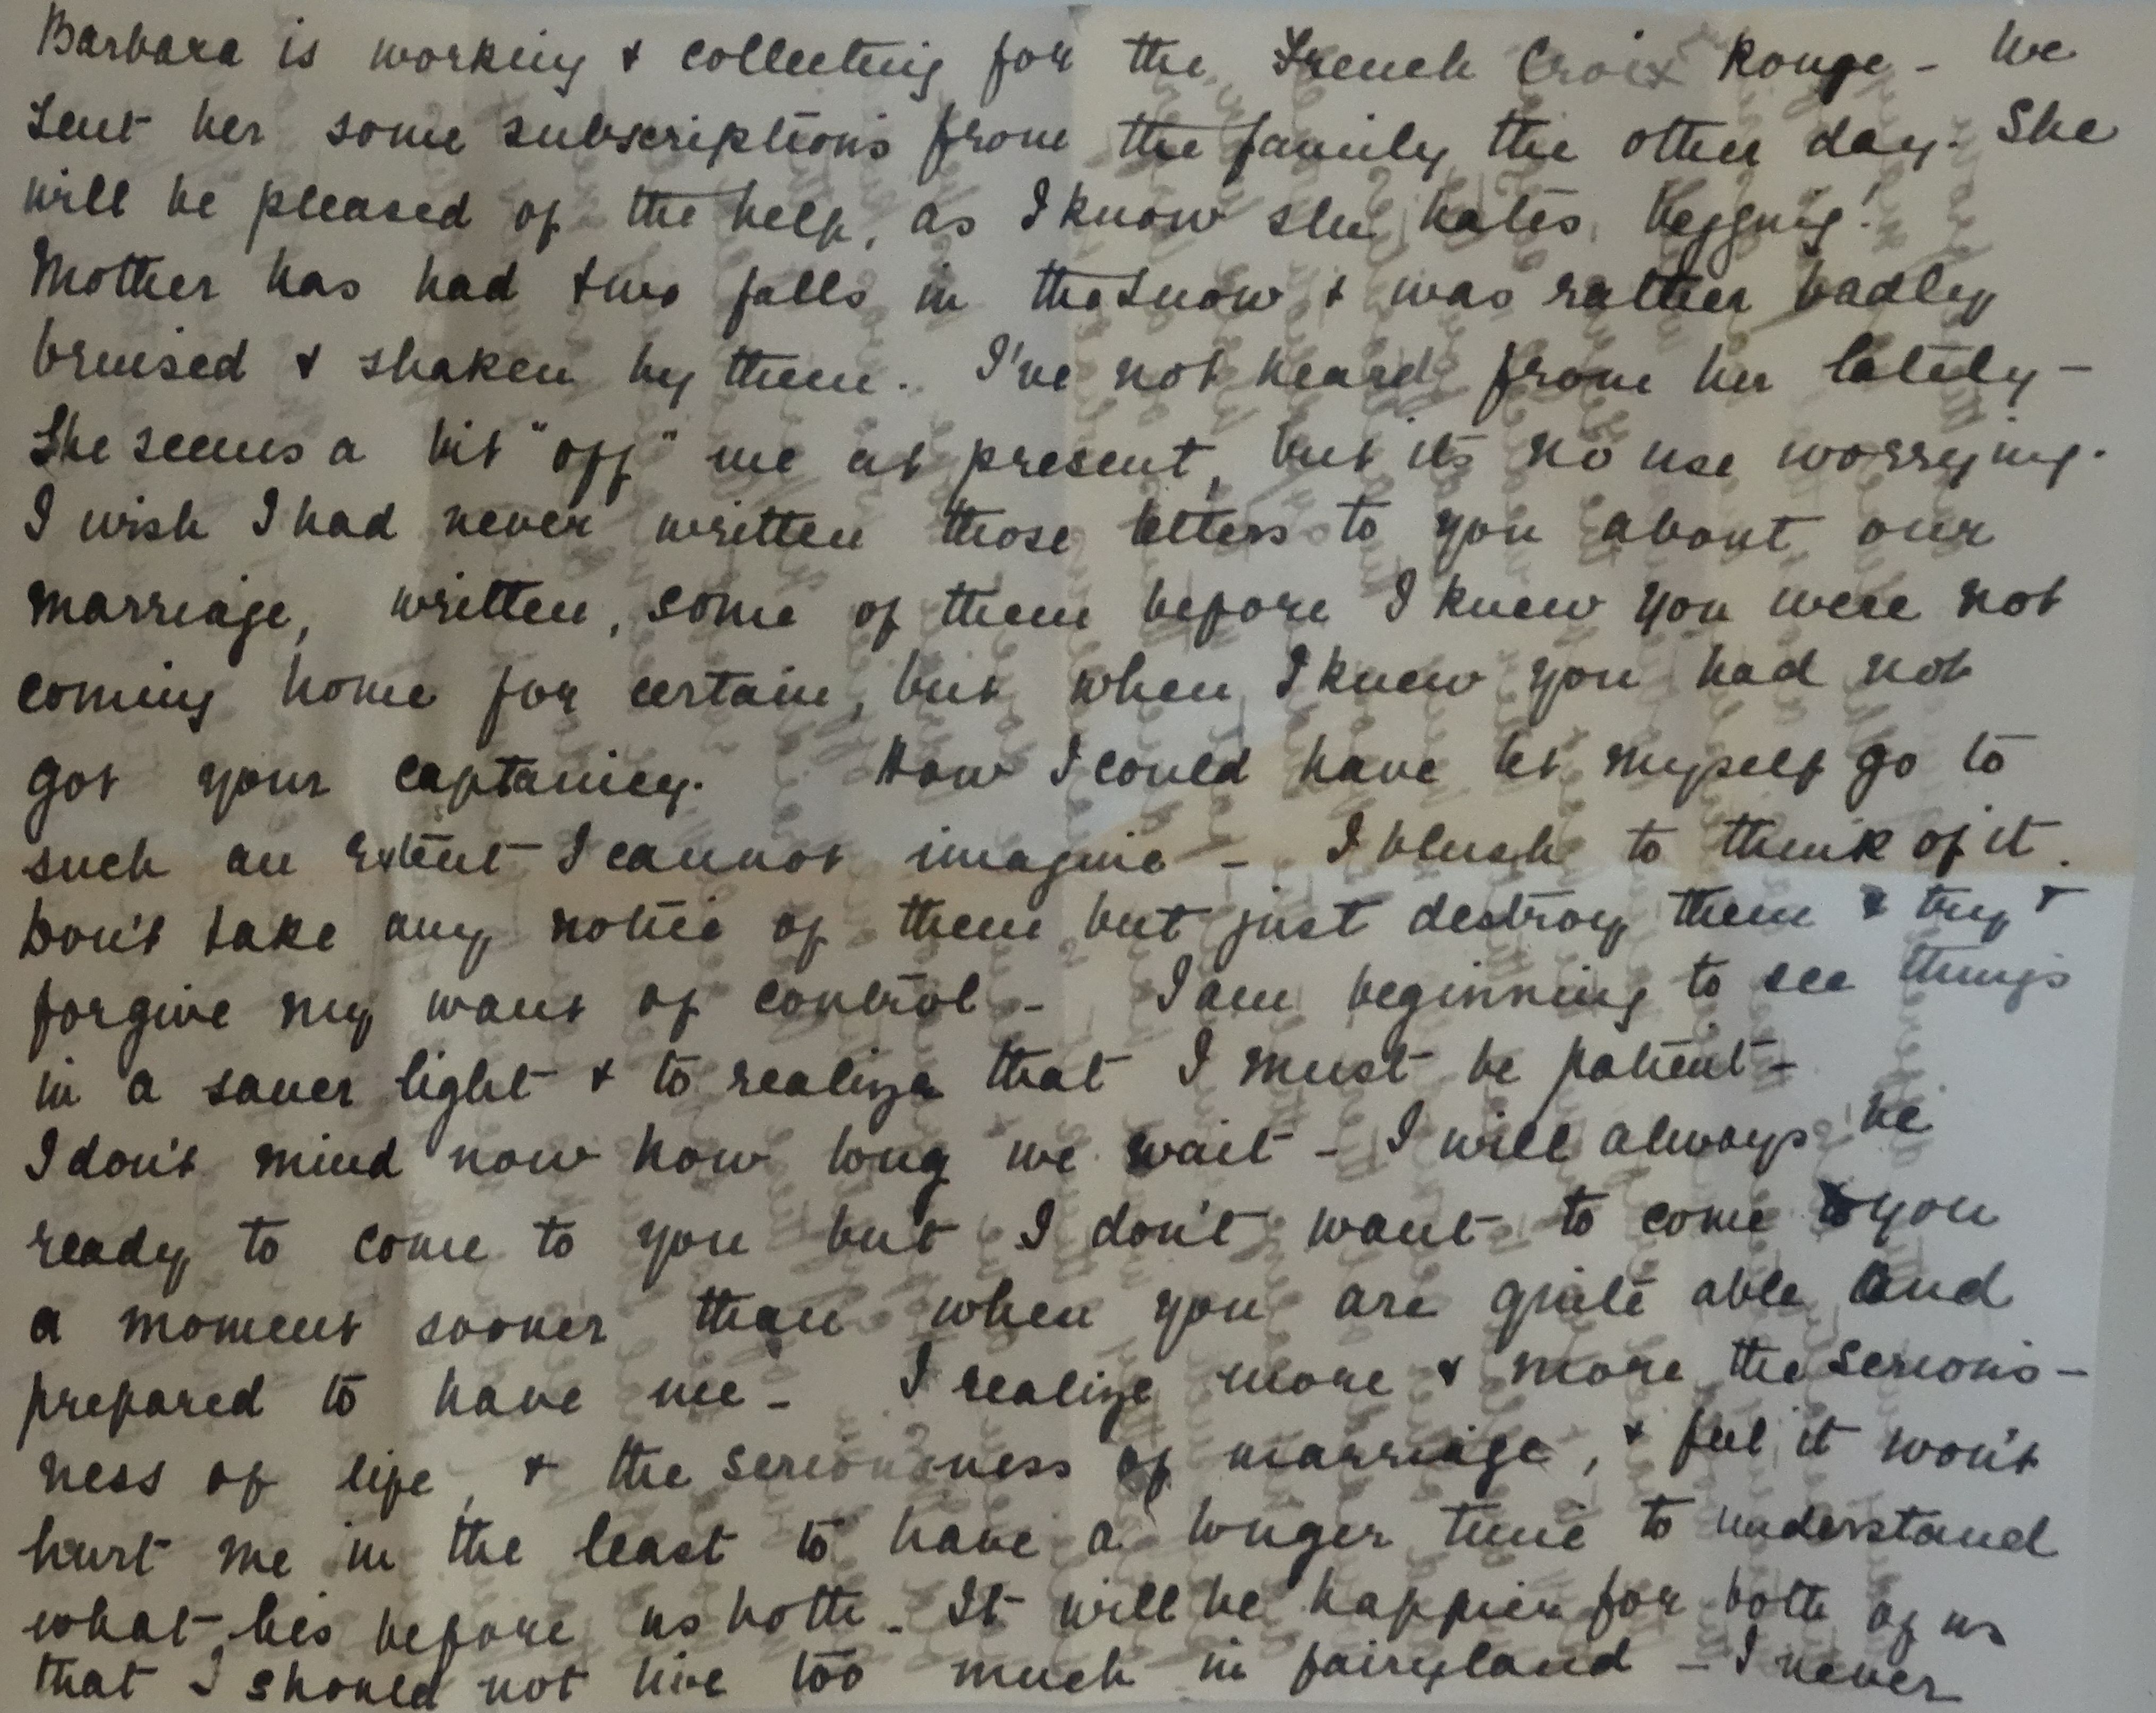 Barbara is working & collecting for the French Croix Rouge - We
sent her some subscriptions from the family the other day. She
will be pleased of the help, as I know she hates begging!
Mother has had two falls in the snow & was rather badly
bruised & shaken by them. I've not heard from her lately -
She seems a bit "off" me at present, but its no use worrying.
I wish I had never written those letters to you about our
marriage, written, some of them before I knew you were not
coming home for certain, but when I knew you had not
got your captaincy. How I could have let myself go to
such an extent I cannot imagine - I blush to think of it.
Don't take any notice of them but just destroy them & try &
forgive my want of control - I am beginning to see things
in a saner light & to realize that I must be patient -
I don't mind now how long we wait - I will always be
ready to come to you but I don't want to come to you
a moment sooner than when you are quite able and
prepared to have me - I realize more & more the serious-
ness of life, & the seriousness of marriage, & feel it won't
hurt me in the least to have a longer time to understand
what lies before us both. It will be happier for both of us
that I should not live too much in fairyland - I never